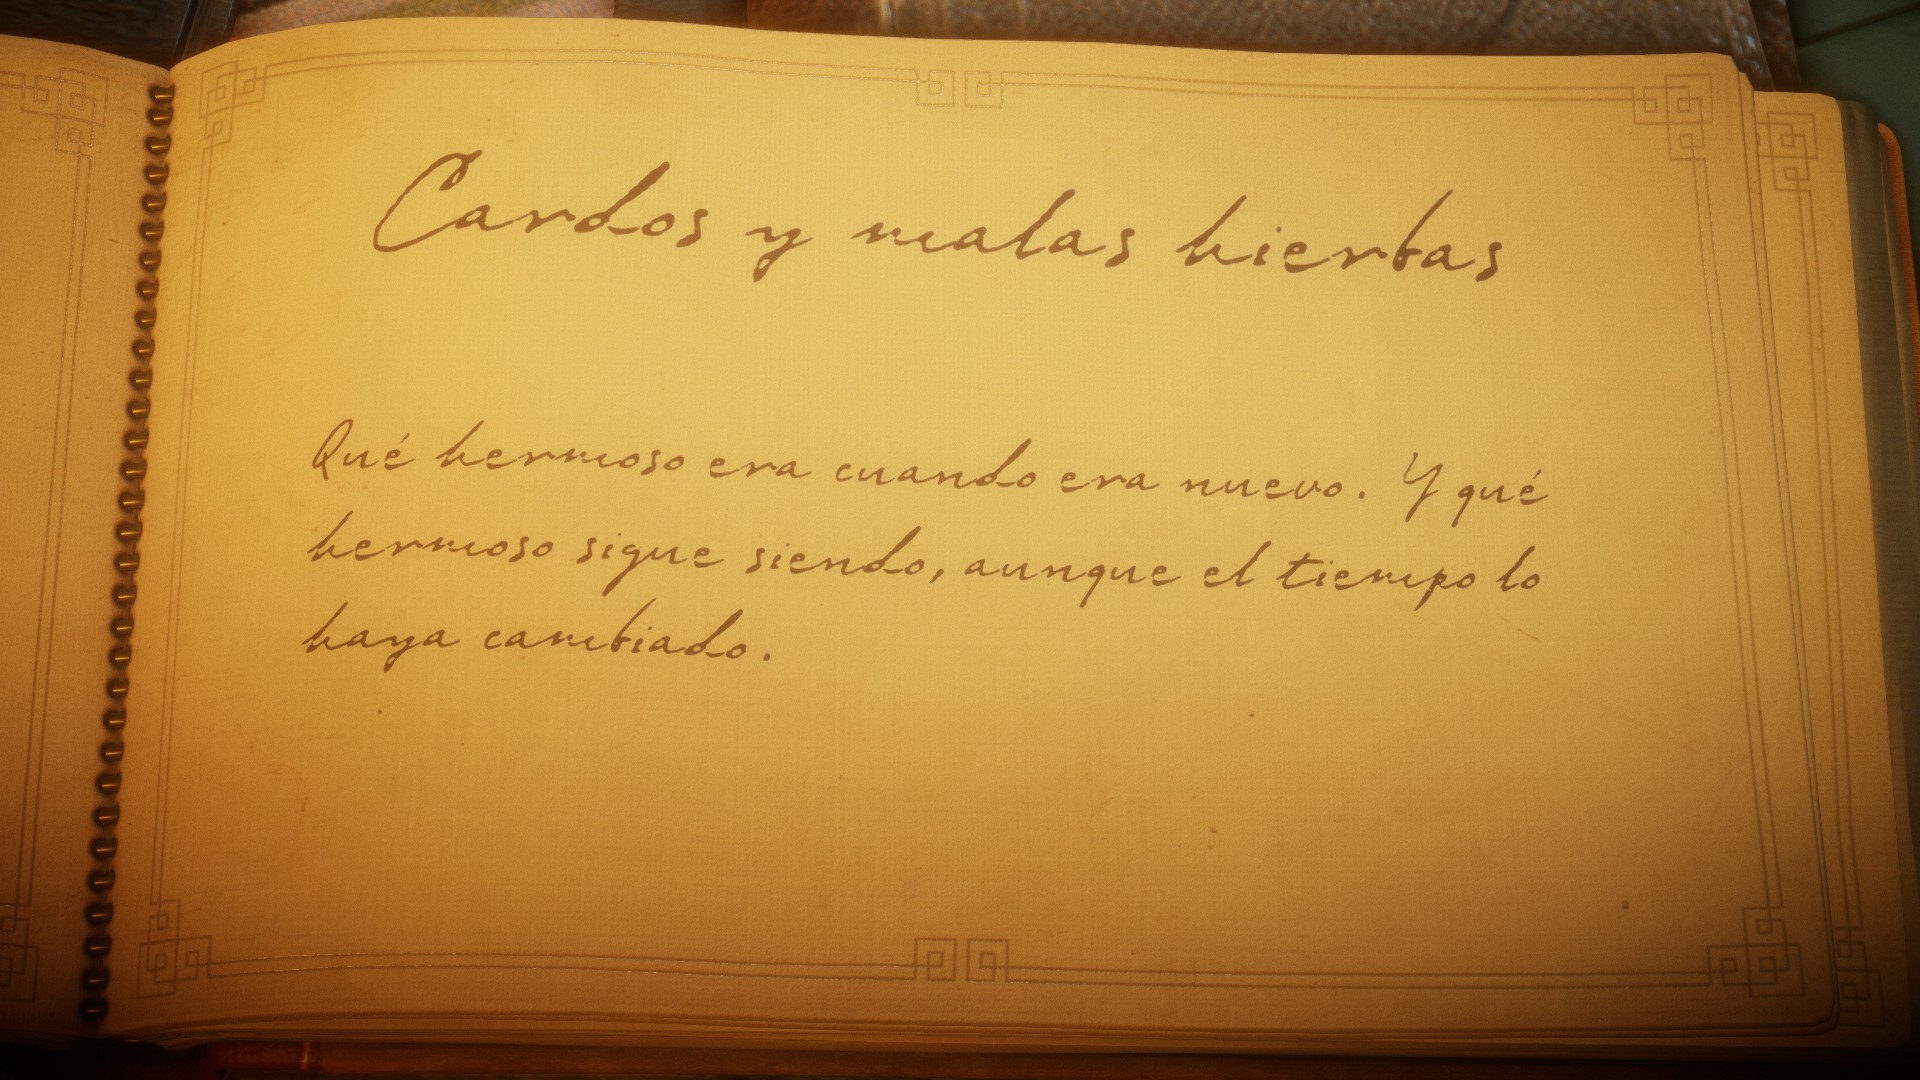 Cardos y malas hierbas
Qué hermoso era cuando era nuevo. Y qué
hermoso sigue siendo, aunque el tiempo lo
haya cambiado.